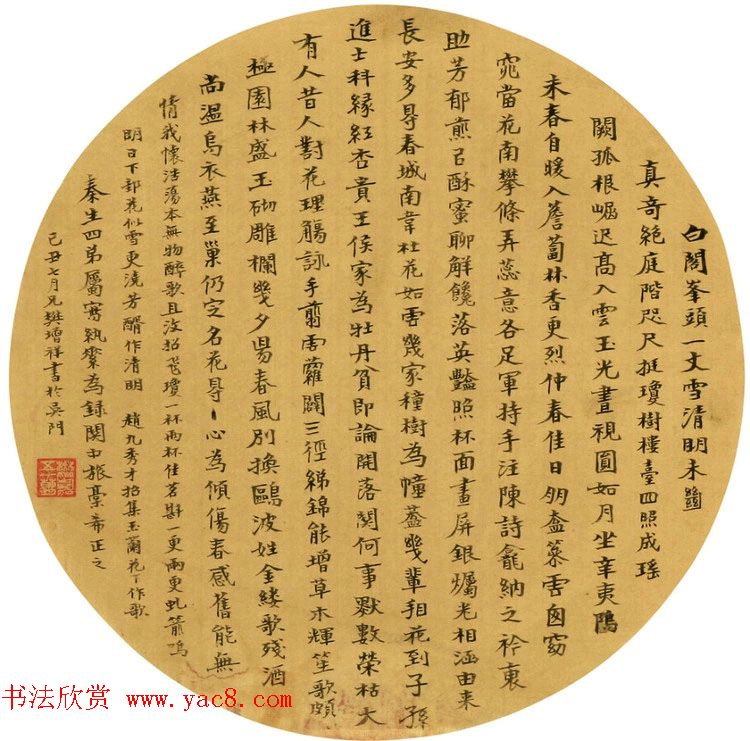 白閣峯頭一丈雪清明未
真奇絕庭階咫尺挺瓊樹樓臺四照成瑤
闕孤根崛起高入雲玉光晝視圓如月坐辛夷隖
來春自暖入簷蔔林香更烈仲春佳日朋盍簪雲囱窈
窕當花南攀條弄蕊意各足軍持手注陳詩龕納之衿裏
助芳郁煎召酥蜜聊解饞落英豔照杯面畫屏銀燭光相涵由來
長安多尋春城南韋杜花如雲幾家種樹為幢蓋幾輩看花到子孫
進士科緣紅杏貴王侯家為牡丹貧即論開落関何事默數榮枯大
有人昔人對花理觴詠手翦雲蘿闢三徑綈錦能增草木輝笙歌頗
極園林盛玉砌雕欄幾夕陽春風別換鷗波姓金縷歌殘酒
尚溫烏衣燕至巢仍定名花尋尋心為傾傷春感舊能無
情我懷浩蕩本無物醉歌且汝招飛瓊一杯兩杯佳茗斟一更兩更虬箭鳴
明日下部花似雪更澆芳醑作清明 趙九秀才招集玉蘭花下作歌
秦生四弟屬寫紈素為錄関中旅稾希正之
己丑七月兄樊增祥書於吳門
书法欣赏 www.yac8.com